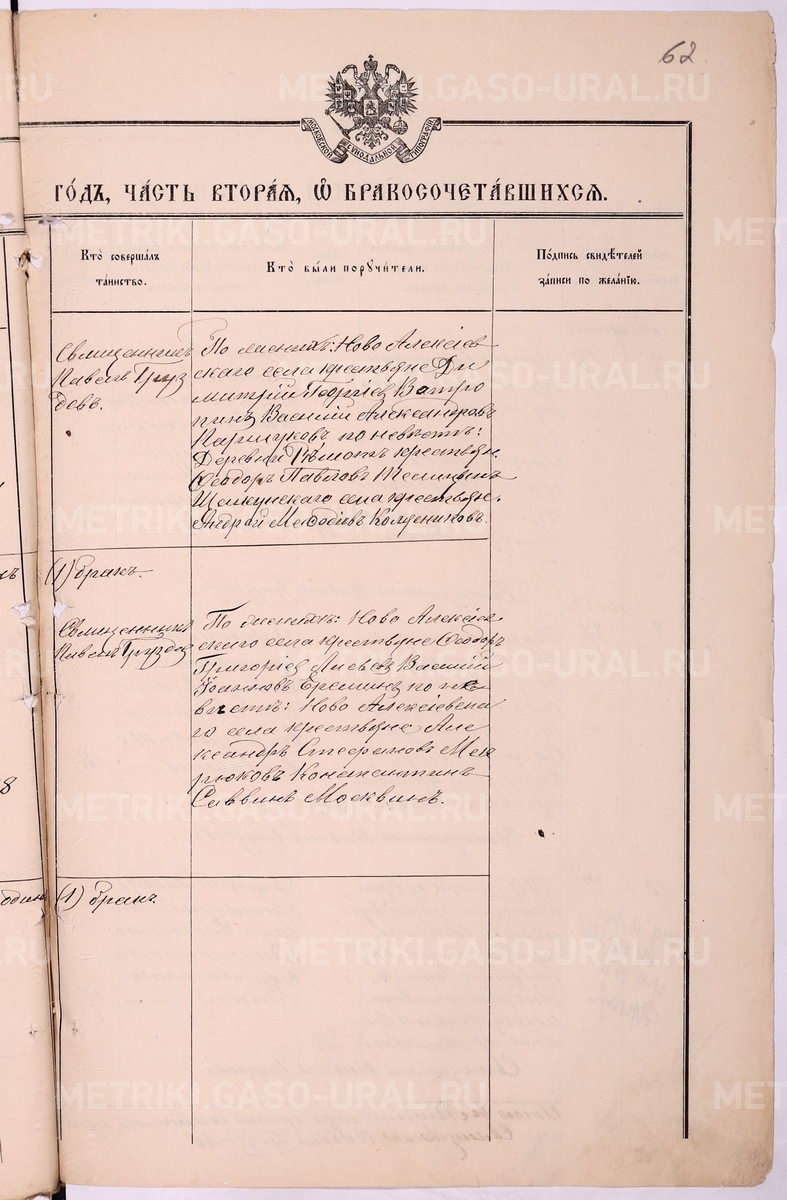 62
МОСКОВСКОЙ СѴНОДАЛЬНОЙ ТИПОГРАФІИ
ГО́ДЪ, ЧА́СТЬ ВТОРА́Я, Ѡ҆ БРАКОСОЧЕТА́ВШИХСЯ.
Кто̀ соверша́лъ
та́инство.
Кто̀ бы́ли порꙋчи́тели.
По́дпись свидѣ́телей
за́писи по жела́нїю.
Священникъ
Павелъ Груз
девъ.
По женихѣ: Ново Алексіев
скаго села крестьяне Ди
митрій Георгіев Ватро
пинъ Василій Александровъ
Паршуковъ по невѣстѣ:
Деревни крестьян.
Ѳеодоръ Павловъ
Щелкунскаго села крестьян.
Андрей Меѳодіевъ Колясниковъ.
(1) бракъ.
Священникъ
Павелъ Груздев
По женихѣ: Ново Алексіев
скаго села крестьяне Ѳеодоръ
Григоріев Василій
Іоанновъ Ереминъ по не
вѣстѣ: Ново Алексіевска
го села крестьяне Але
ксандръ Стефановъ Мен
рюковъ Константинъ
Саввинъ Москвинъ.
один
8
(1) бракъ.
METRIKI.GASO-URAL.RU